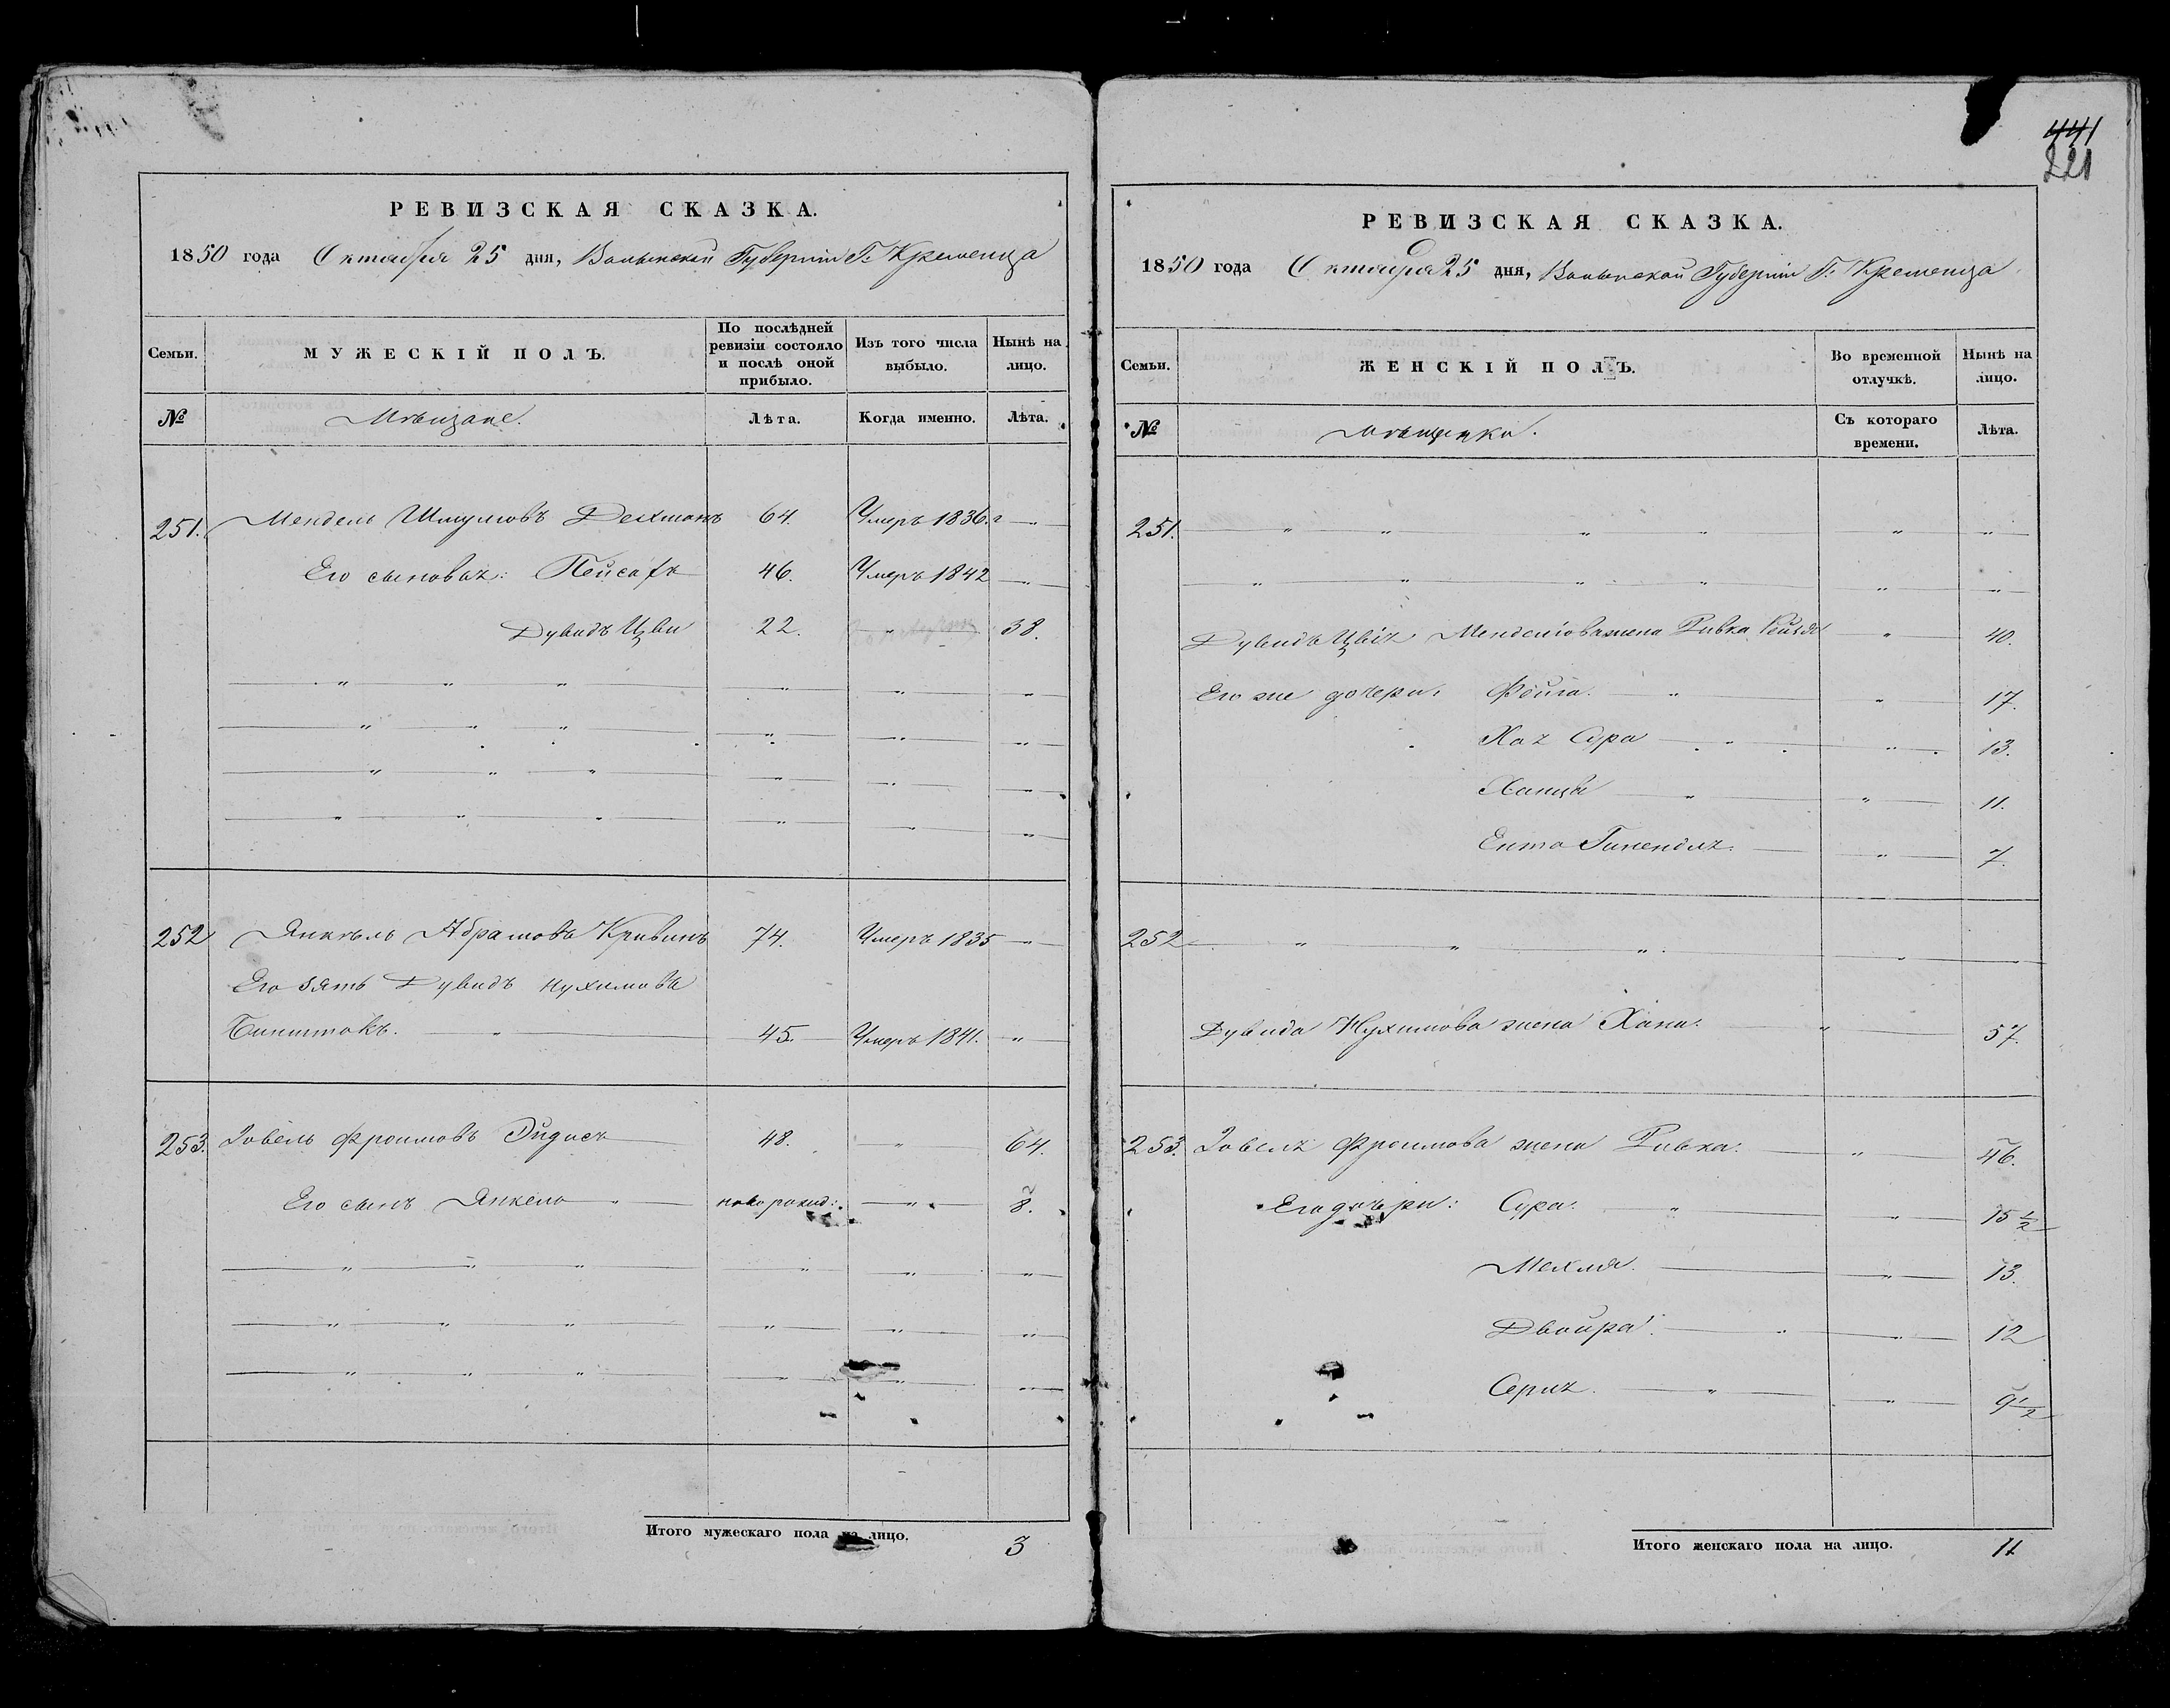 РЕВИЗСКАЯ СКАЗКА.
1850 года Октября 25 дня, Волынской Губернии Г. Кременца
Семьи. МУЖЕСКІЙ ПОЛЪ. По послѣдней ревизіи состояло и послѣ оной прибыло. Изъ того числа выбыло. Нынѣ на лицо.
№ Мѣщане. Лѣта. Когда именно. Лѣта.
251. Мендель Шмулювъ Дехтманъ 64. Умеръ 1836. г — „ —
Его сыновья: Пейсахъ 46. Умеръ 1842 — „ —
Дувидъ Цви 22. „ 38.
252 Янкель Абрамовъ Кривинъ 74. Умеръ 1835 — „ —
Его зять Дувидъ Нухимовъ
Бинштокъ. — „ — 45. Умеръ 1841. — „ —
253. Іовель Фроимовъ Эйдисъ 48. „ 64.
Его сынъ Янкель — „ — новорожд: — „ — 8.
Итого мужескаго пола на лицо. 3
441
221
РЕВИЗСКАЯ СКАЗКА.
1850 года Октября 25 дня, Волынской Губернии Г. Кременца
Семьи. ЖЕНСКІЙ ПОЛЪ. Во временной отлучкѣ. Нынѣ на лицо.
№ Мѣщанки. Съ котораго времени. Лѣта.
251.
Дувида Цвія Менделіова жена Ривка Рейзя „ 40.
Его же дочери: Фейга. — „ — „ 17.
Хая Сура — „ — „ 13.
Ханцы — „ — „ 11.
Ента Гинендля. — „ 7.
252
Дувида Нухимова жена Хана. — „ — 57.
253. Іовеля Фроимова жена Ривка. — „ — 46.
Его дочери: Сура. — „ — „ 15 1/2
Мехля. — „ — 13.
Двойра. — „ — „ 12
Серля. — „ — „ 9 1/2
Итого женскаго пола на лицо. 11